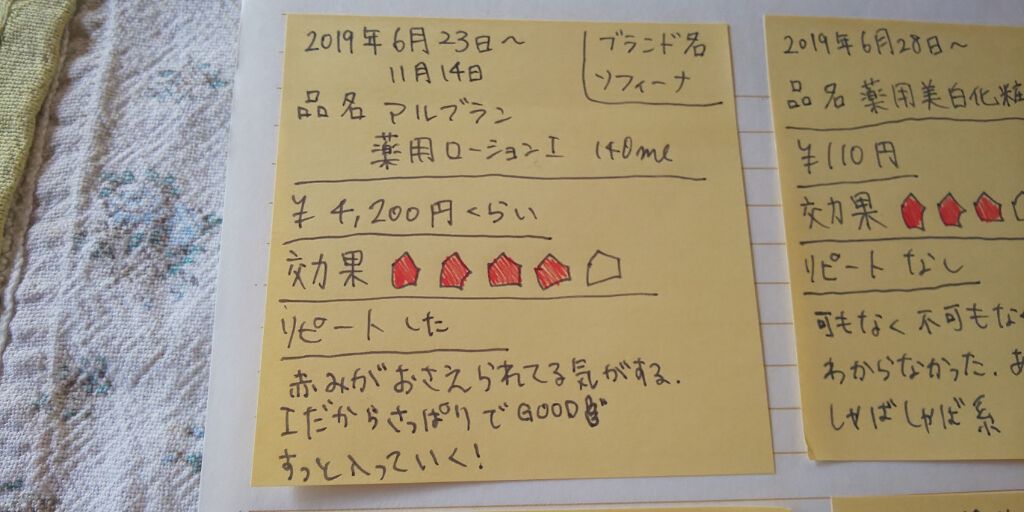 2019年6月23日～
11月14日
ブランド名
ソフィーナ
品名 アルブラン
薬用ローションI 140ml
¥4,200円くらい
効果
リピート した
赤みがおさえられてる気がする.
IだからさっぱりでGOOD
すっと入っていく!
2019年6月28日～
品名 薬用美白化粧
¥110円
効果
リピート なし
可もなく不可もなく
わからなかった.あ
しゃばしゃば系